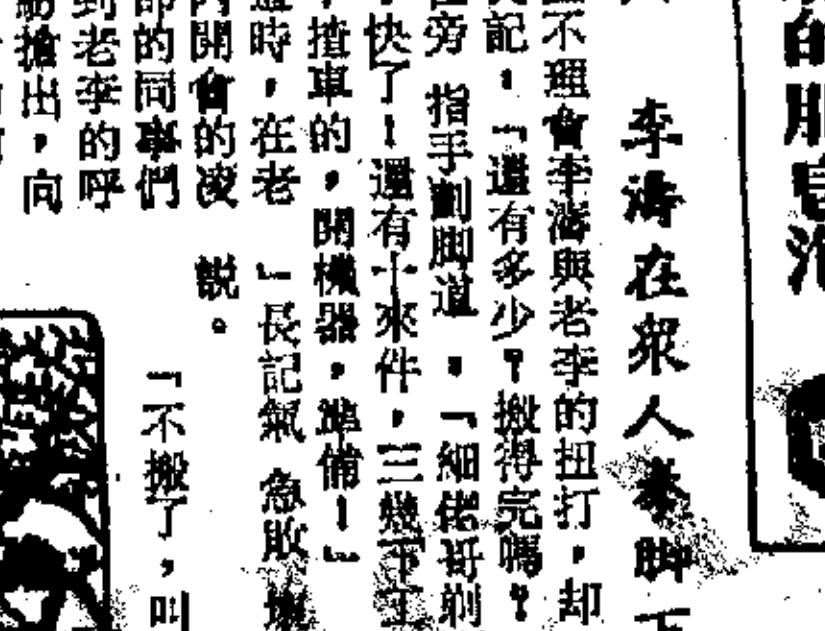 的
李濤在衆人拳脚下
不理會李濤與老李的扭打，却
記，「還有多少？搬得完嗎？
旁 指手劃脚道，「細佬哥剃
快了！還有十來件，三幾下工
揸車的，開機器，準備！」
時，在老 」長記氣 急敗 壞
開會的凌 說。
的同事們 「不搬了，叫
到老李的呼
搶出，向